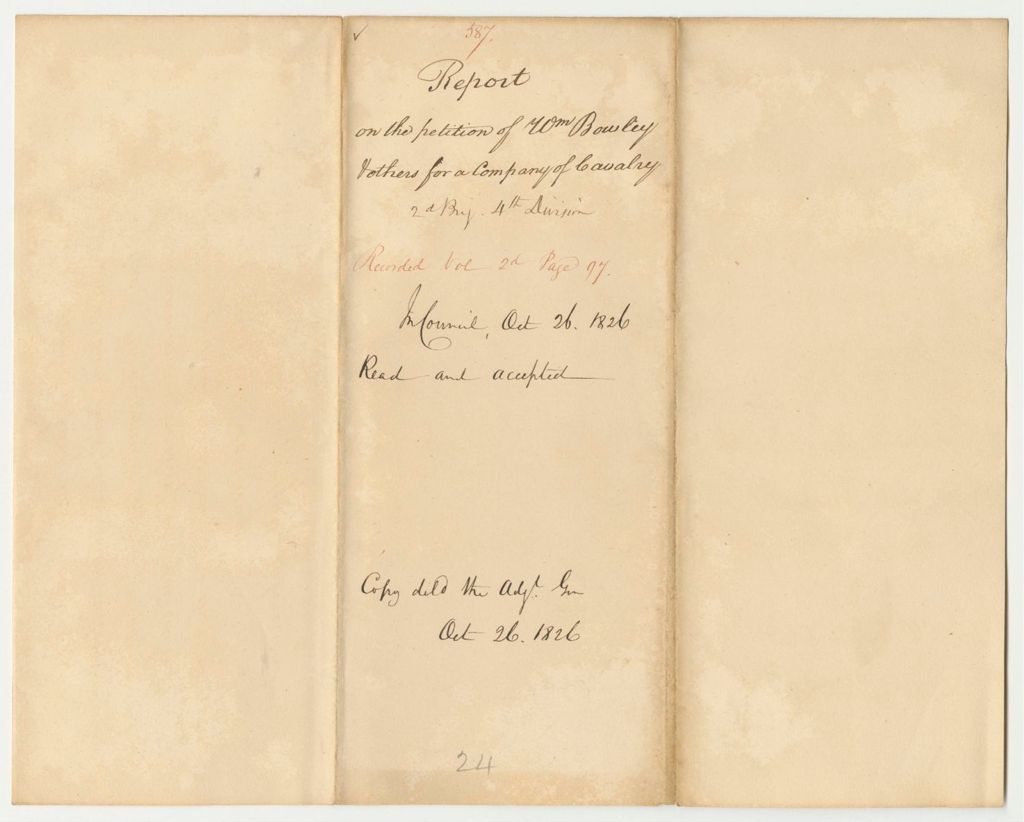 ✓ 587.
Report
on the petition of Wm Bowley
& others for a Company of Cavalry
2d Brig. 4th Division
Recorded Vol 2d Page 97.
In Council, Oct 26. 1826
Read and accepted
Copy deld the Adjt. Gen
Oct 26. 1826
24